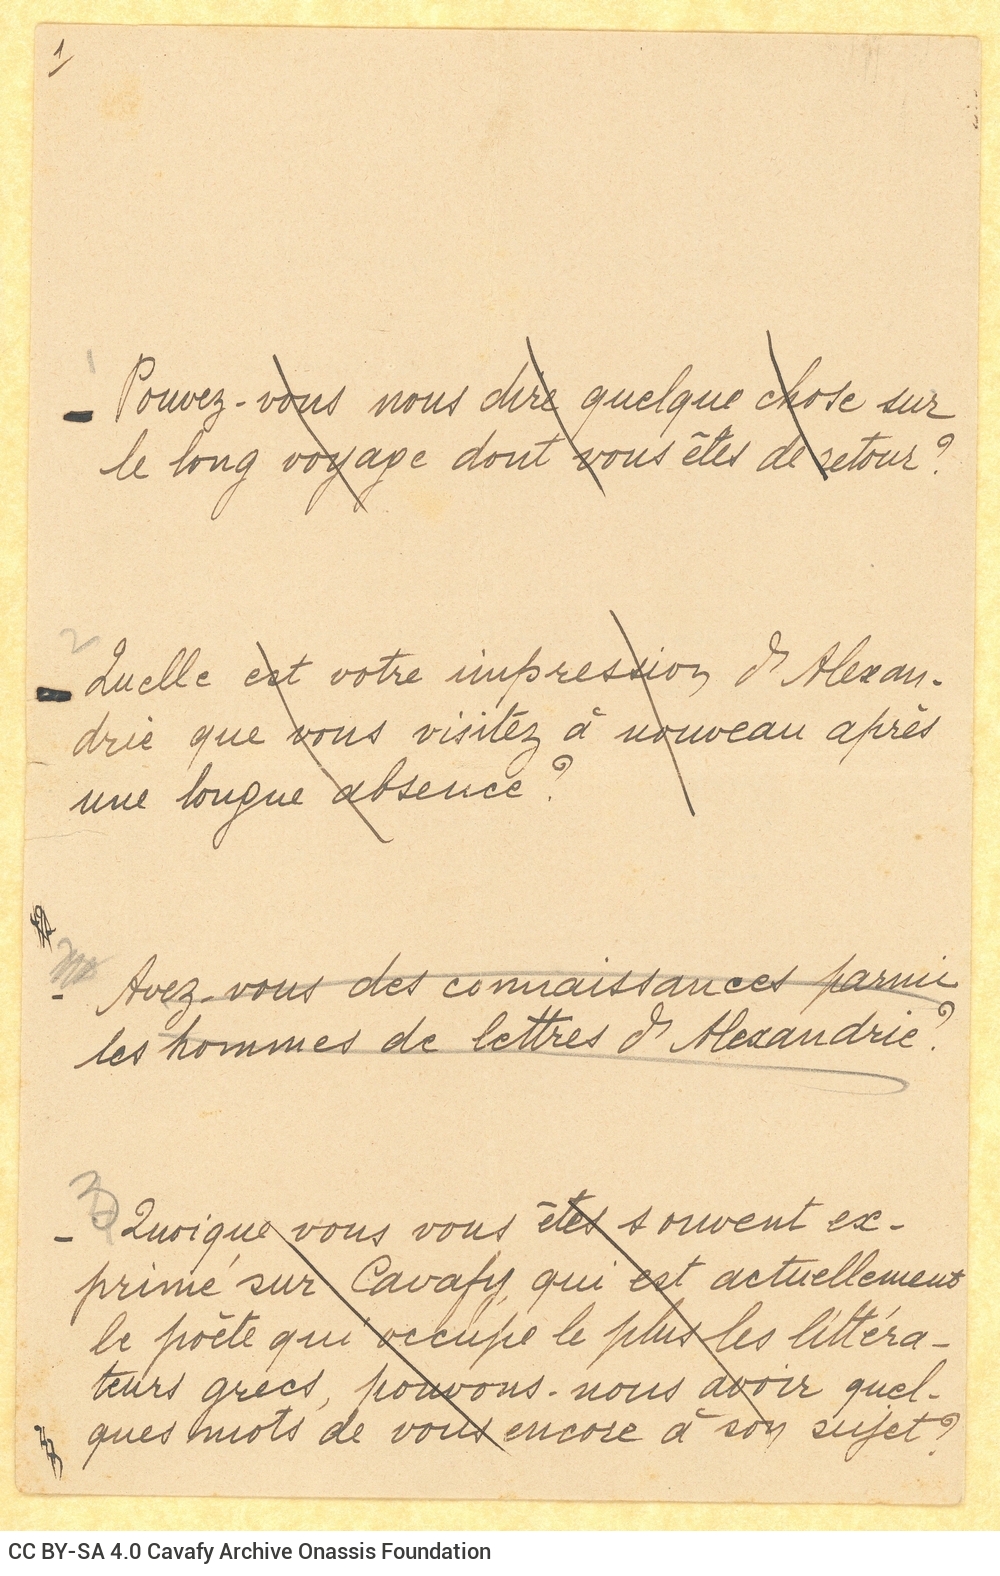 1
1
- Pouvez-vous nous dire quelque chose sur
le long voyage dont vous êtes de retour?
2
- Quelle est votre impression d'Alexan-
drie que vous visitez à nouveau après
une longue absence?
- Avez-vous des connaissances parmi
les hommes de lettres d'Alexandrie?
3
- Quoique vous vous êtes souvent ex-
primé sur Cavafy, qui est actuellement
le poête qui occupe le plus les littéra-
teurs grecs, pouvons-nous avoir quel-
ques mots de vous encore à son sujet?
CC BY-SA 4.0 Cavafy Archive Onassis Foundation